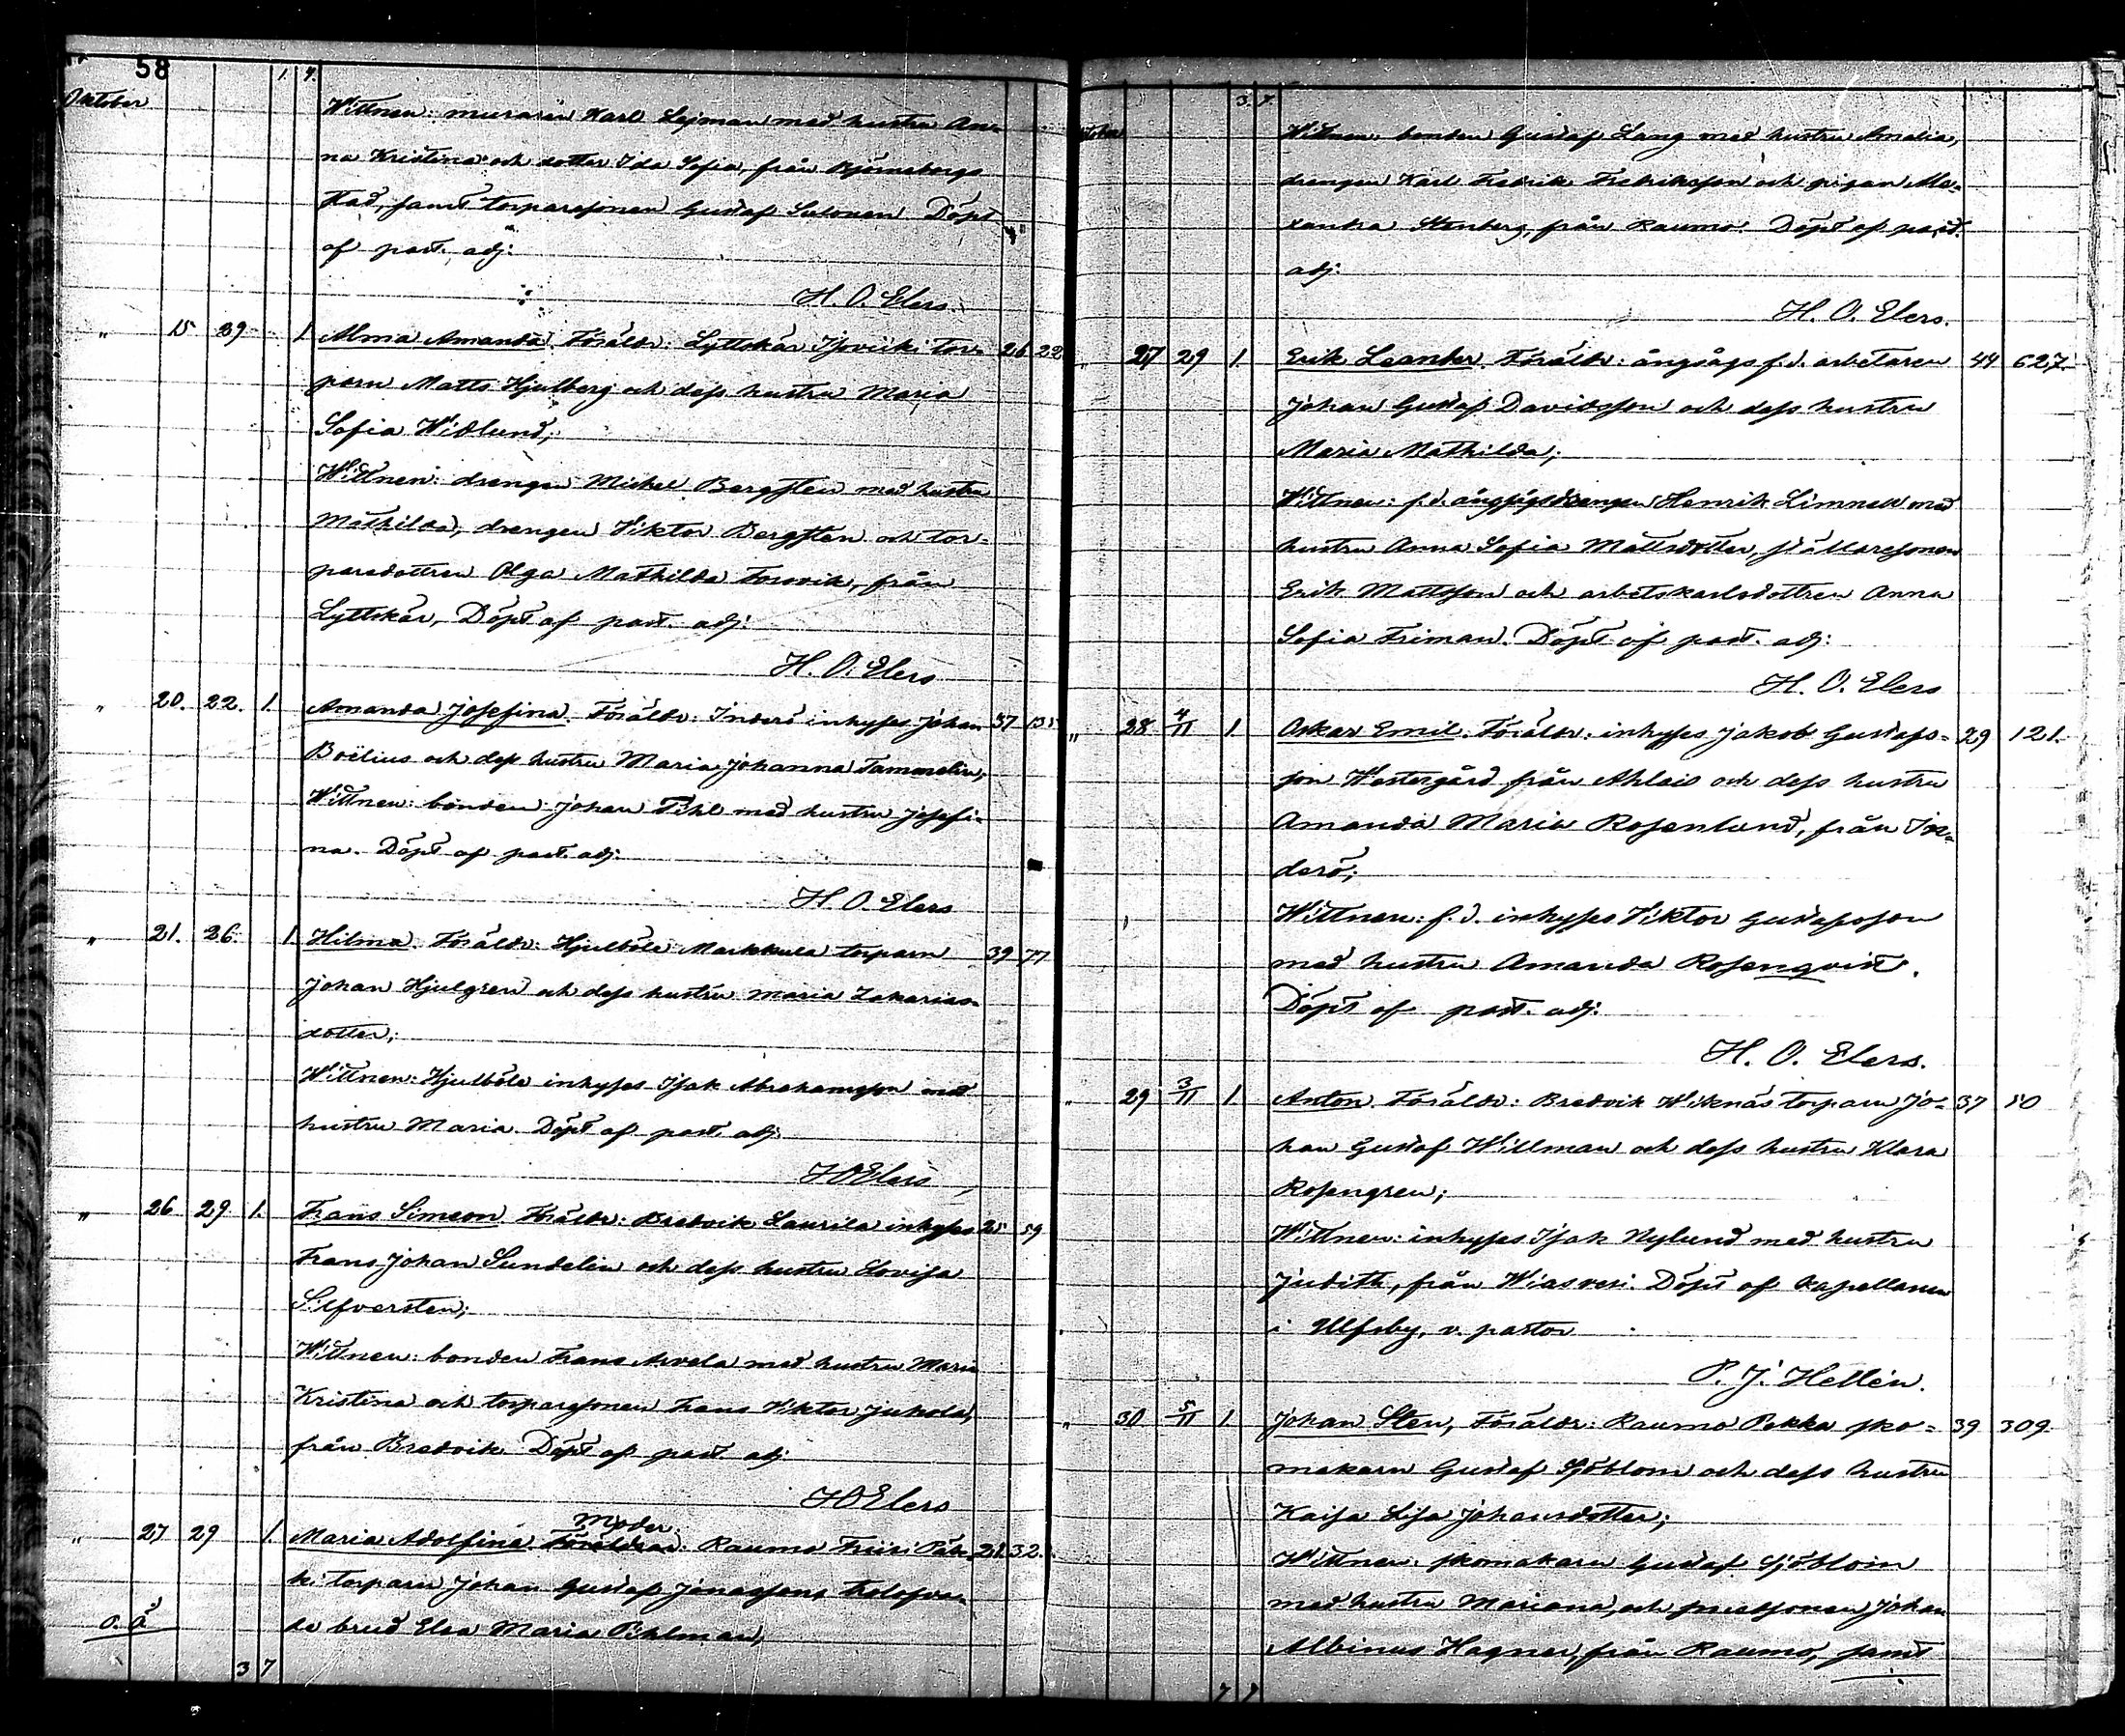 58
1. 4.
Oktober
Wittnen: muraren Karl Lejman med hustru An-
na Kristina och dotter Ida Sofia, från Björneborgs
stad, samt torparesonen Gustaf Salonen Döpt
af past. adj:
H. O. Elers.
" 15 29 1. Alma Amanda. Föräldr: Lyttskär Isoviiki tor- 26 22
parn Matts Hjulberg och dess hustru Maria
Sofia Widlund;
Wittnen: drengen Mickel Bergsten med hustru
Mathilda, drengen Viktor Bergsten och tor-
paredottren Olga Mathilda Forsvik, från
Lyttskär, Döpt af past. adj:
H. O. Elers
" 20. 22. 1. Amanda Josefina. Föräldr: Inderö inhyses Johan 37
Boëlius och dess hustru Maria Johanna Tammelin;
Wittnen: bonden Johan Pihl med hustru Josefi-
na. Döpt af past. adj:
H. O. Elers
" 21. 26. 1. Hilma. Föräldr: Hjulböle Markkula torparn 39 77
Johan Hjulgren och dess hustru Maria Zakarias-
dotter;
Wittnen: Hjulböle inhyses Isak Abrahamsson med
hustru Maria. Döpt af past. adj:
H O Elers
" 26 29 1. Frans Simeon. Föräldr: Bredvik Laurila inhyses 25 59
Frans Johan Sundelin och dess hustru Lovisa
Silfversten;
Wittnen: bonden Frans Arvela med hustru Maria
Kristina och torparesonen Frans Viktor Jukola,
från Bredvik Döpt af past. adj:
H O Elers
Moder:
" 27 29 1. Maria Adolfina Föräldrar: Raumo Friis Päk- 21 32.
ki torparn Johan Gustaf Jonassons trolofva-
de brud Elsa Maria Pihlman;
o. ä
3 7
3. 7.
Wittnen: bonden Gustaf Lang med hustru Amalia,
drengen Karl Fredrik Fredriksson och pigan Ale-
xandra Stenberg, från Raumo. Döpt af past.
adj:
H. O. Elers.
" 27 29 1. Erik Leander. Föräldr: ångsågs f.d. arbetaren 44 627.
Johan Gustaf Davidsson och dess hustru
Maria Mathilda;
Wittnen: f.d. ångsågsdrengen Henrik Limnell med
hustru Anna Sofia Mattsdotter,
Erik Mattsson och arbetskarlsdottren Anna
Sofia Friman. Döpt af past. adj:
H. O. Elers
" 28 4/11 1. Oskar Emil. Föräldr: inhyses Jakob Gustafs- 29 121.
son Westergård från Ahlais och dess hustru
Amanda Maria Rosenlund, från In-
derö;
Wittnen: f.d. inhyses Viktor Gustafsson
med hustru Amanda Rosenqvist.
Döpt af past. adj:
H. O. Elers.
" 29 3/11 1. Anton. Föräldr: Bredvik Wiknäs torparn Jo- 37 50
han Gustaf Willman och dess hustru Klara
Rosengren;
Wittnen: inhyses Isak Nylund med hustru
Judith, från Wiasvesi. Döpt af kapellanen
i Ulfsby, v. pastor
P. J. Hellén.
" 30 5/11 1. Johan Sten, Föräldr: Raumo Pekka sko- 39 309.
makarn Gustaf Sjöblom och dess hustru
Kaisa Lisa Johansdotter;
Wittnen: skomakaren Gustaf Sjöblom
med hustru Mariana, och Johan
Albinus Hagner, från Raumo, samt
7 7